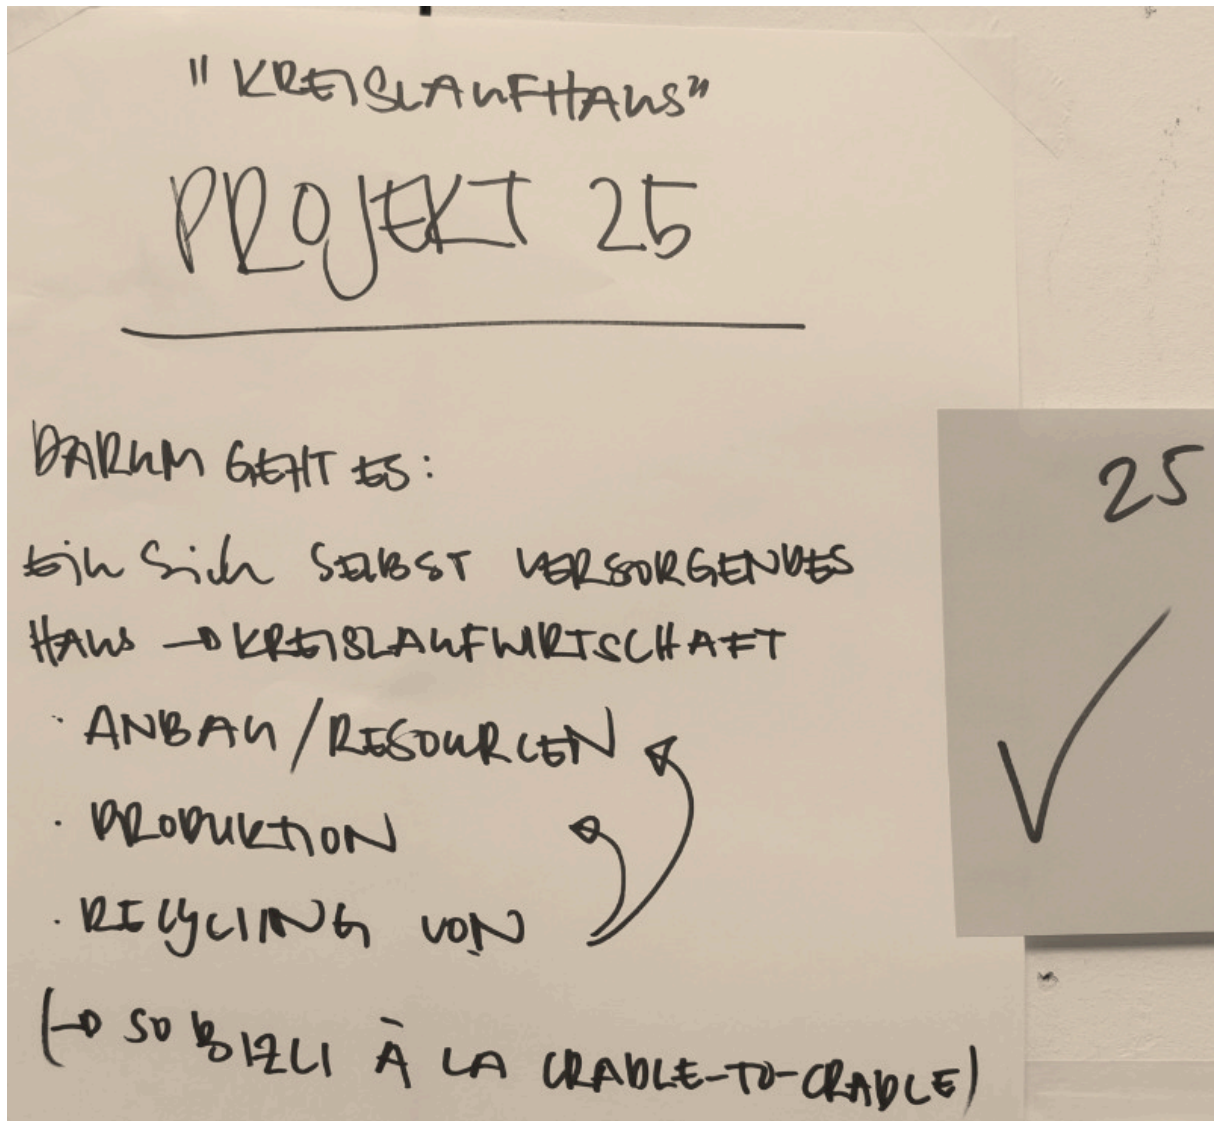 "KREISLAUFHAUS"
PROJEKT 25
DARUM GEHT ES:
Ein Sich SELBST VERSORGENDES
HAUS → KREISLAUFWIRTSCHAFT
· ANBAU / RESOURCEN
· PRODUKTION
· RECYCLING VON
(→ SO BIZLI À LA CRADLE-TO-CRADLE)
25